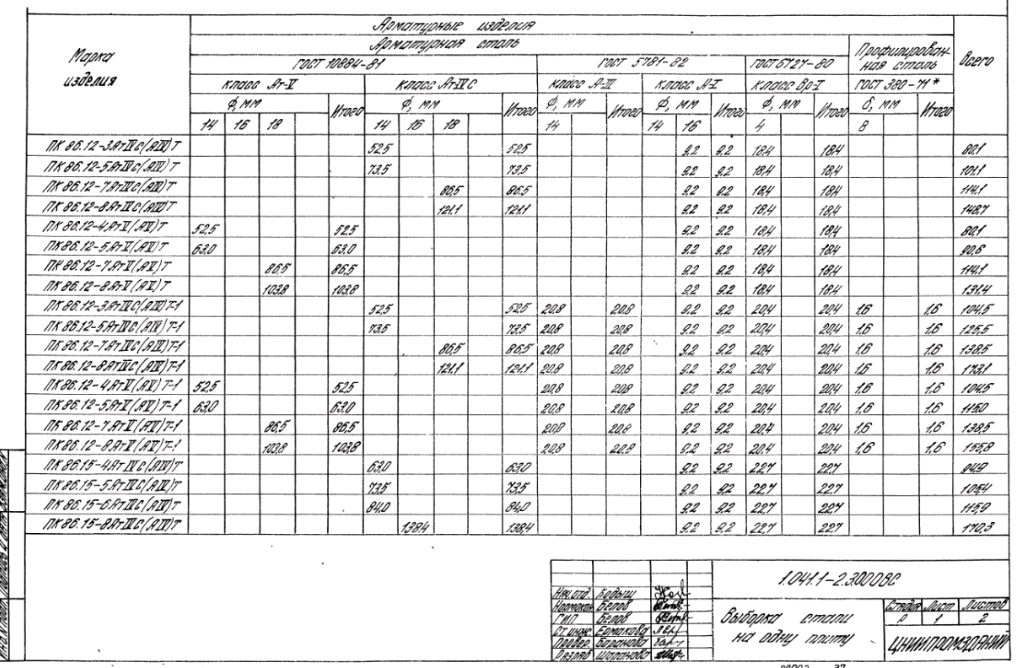 Марка изделия
Арматурные изделия
Арматурная сталь
Профилированная сталь
Всего
ГОСТ 10884-81
ГОСТ 5781-82
ГОСТ 6727-80
ГОСТ 380-71*
класс Ат-V
класс Ат-IVС
класс А-III
класс А-I
класс Вр-I
ϕ, мм Итого ϕ, мм Итого ϕ, мм Итого ϕ, мм Итого ϕ, мм Итого δ, мм Итого
14 16 18 14 16 18 14 14 16 4 8
ПК 86.12-3АтIVС(АIV)Т 52,5 52,5 9,2 9,2 18,4 18,4 80,1
ПК 86.12-5АтIVС(АIV)Т 73,5 73,5 9,2 9,2 18,4 18,4 101,1
ПК 86.12-7АтIVС(АIV)Т 86,5 86,5 9,2 9,2 18,4 18,4 114,1
ПК 86.12-8АтIVС(АIV)Т 121,1 121,1 9,2 9,2 18,4 18,4 148,7
ПК 86.12-4АтV(АV)Т 52,5 52,5 9,2 9,2 18,4 18,4 80,1
ПК 86.12-5АтV(АV)Т 63,0 63,0 9,2 9,2 18,4 18,4 90,6
ПК 86.12-7АтV(АV)Т 86,5 86,5 9,2 9,2 18,4 18,4 114,1
ПК 86.12-8АтV(АV)Т 103,8 103,8 9,2 9,2 18,4 18,4 131,4
ПК 86.12-3АтIVС(АIV)Т-1 52,5 52,5 20,8 20,8 9,2 9,2 20,4 20,4 1,6 1,6 104,5
ПК 86.12-5АтIVС(АIV)Т-1 73,5 73,5 20,8 20,8 9,2 9,2 20,4 20,4 1,6 1,6 125,5
ПК 86.12-7АтIVС(АIV)Т-1 86,5 86,5 20,8 20,8 9,2 9,2 20,4 20,4 1,6 1,6 138,5
ПК 86.12-8АтIVС(АIV)Т-1 121,1 121,1 20,8 20,8 9,2 9,2 20,4 20,4 1,6 1,6 173,1
ПК 86.12-4АтV(АV)Т-1 52,5 52,5 20,8 20,8 9,2 9,2 20,4 20,4 1,6 1,6 104,5
ПК 86.12-5АтV(АV)Т-1 63,0 63,0 20,8 20,8 9,2 9,2 20,4 20,4 1,6 1,6 115,0
ПБ 86.12-7АтV(АV)Т-1 86,5 86,5 20,8 20,8 9,2 9,2 20,4 20,4 1,6 1,6 138,5
ПК 86.12-8АтV(АV)Т-1 103,8 103,8 20,8 20,8 9,2 9,2 20,4 20,4 1,6 1,6 155,8
ПК 86.15-4АтIVС(АIV)Т 63,0 63,0 9,2 9,2 22,7 22,7 94,9
ПК 86.15-5АтIVС(АIV)Т 73,5 73,5 9,2 9,2 22,7 22,7 105,4
ПК 86.15-6АтIVС(АIV)Т 84,0 84,0 9,2 9,2 22,7 22,7 115,9
ПК 86.15-8АтIVС(АIV)Т 138,4 138,4 9,2 9,2 22,7 22,7 170,3
1.041.1-2.3000ВС
Нач.отд. Бодыш
Нормокон. Белов
ГИП Белов
Ст. инж. Ермакова
Провер. Баранова
Разраб. Шаранова
Выборка стали
на одну плиту
Стадия Лист Листов
Р 1 2
ЦНИИПРОМЗДАНИЙ